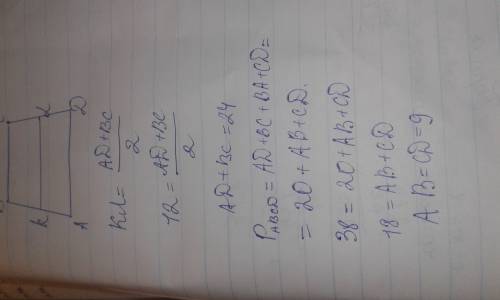 B C
K L
A D
KL = AD+BC / 2
12 = AD+BC / 2
AD+BC = 24
P ABCD = AD+BC+BA+CD=
= 20 + AB+CD.
38 = 20+AB+CD
18 = AB+CD
AB=CD=9